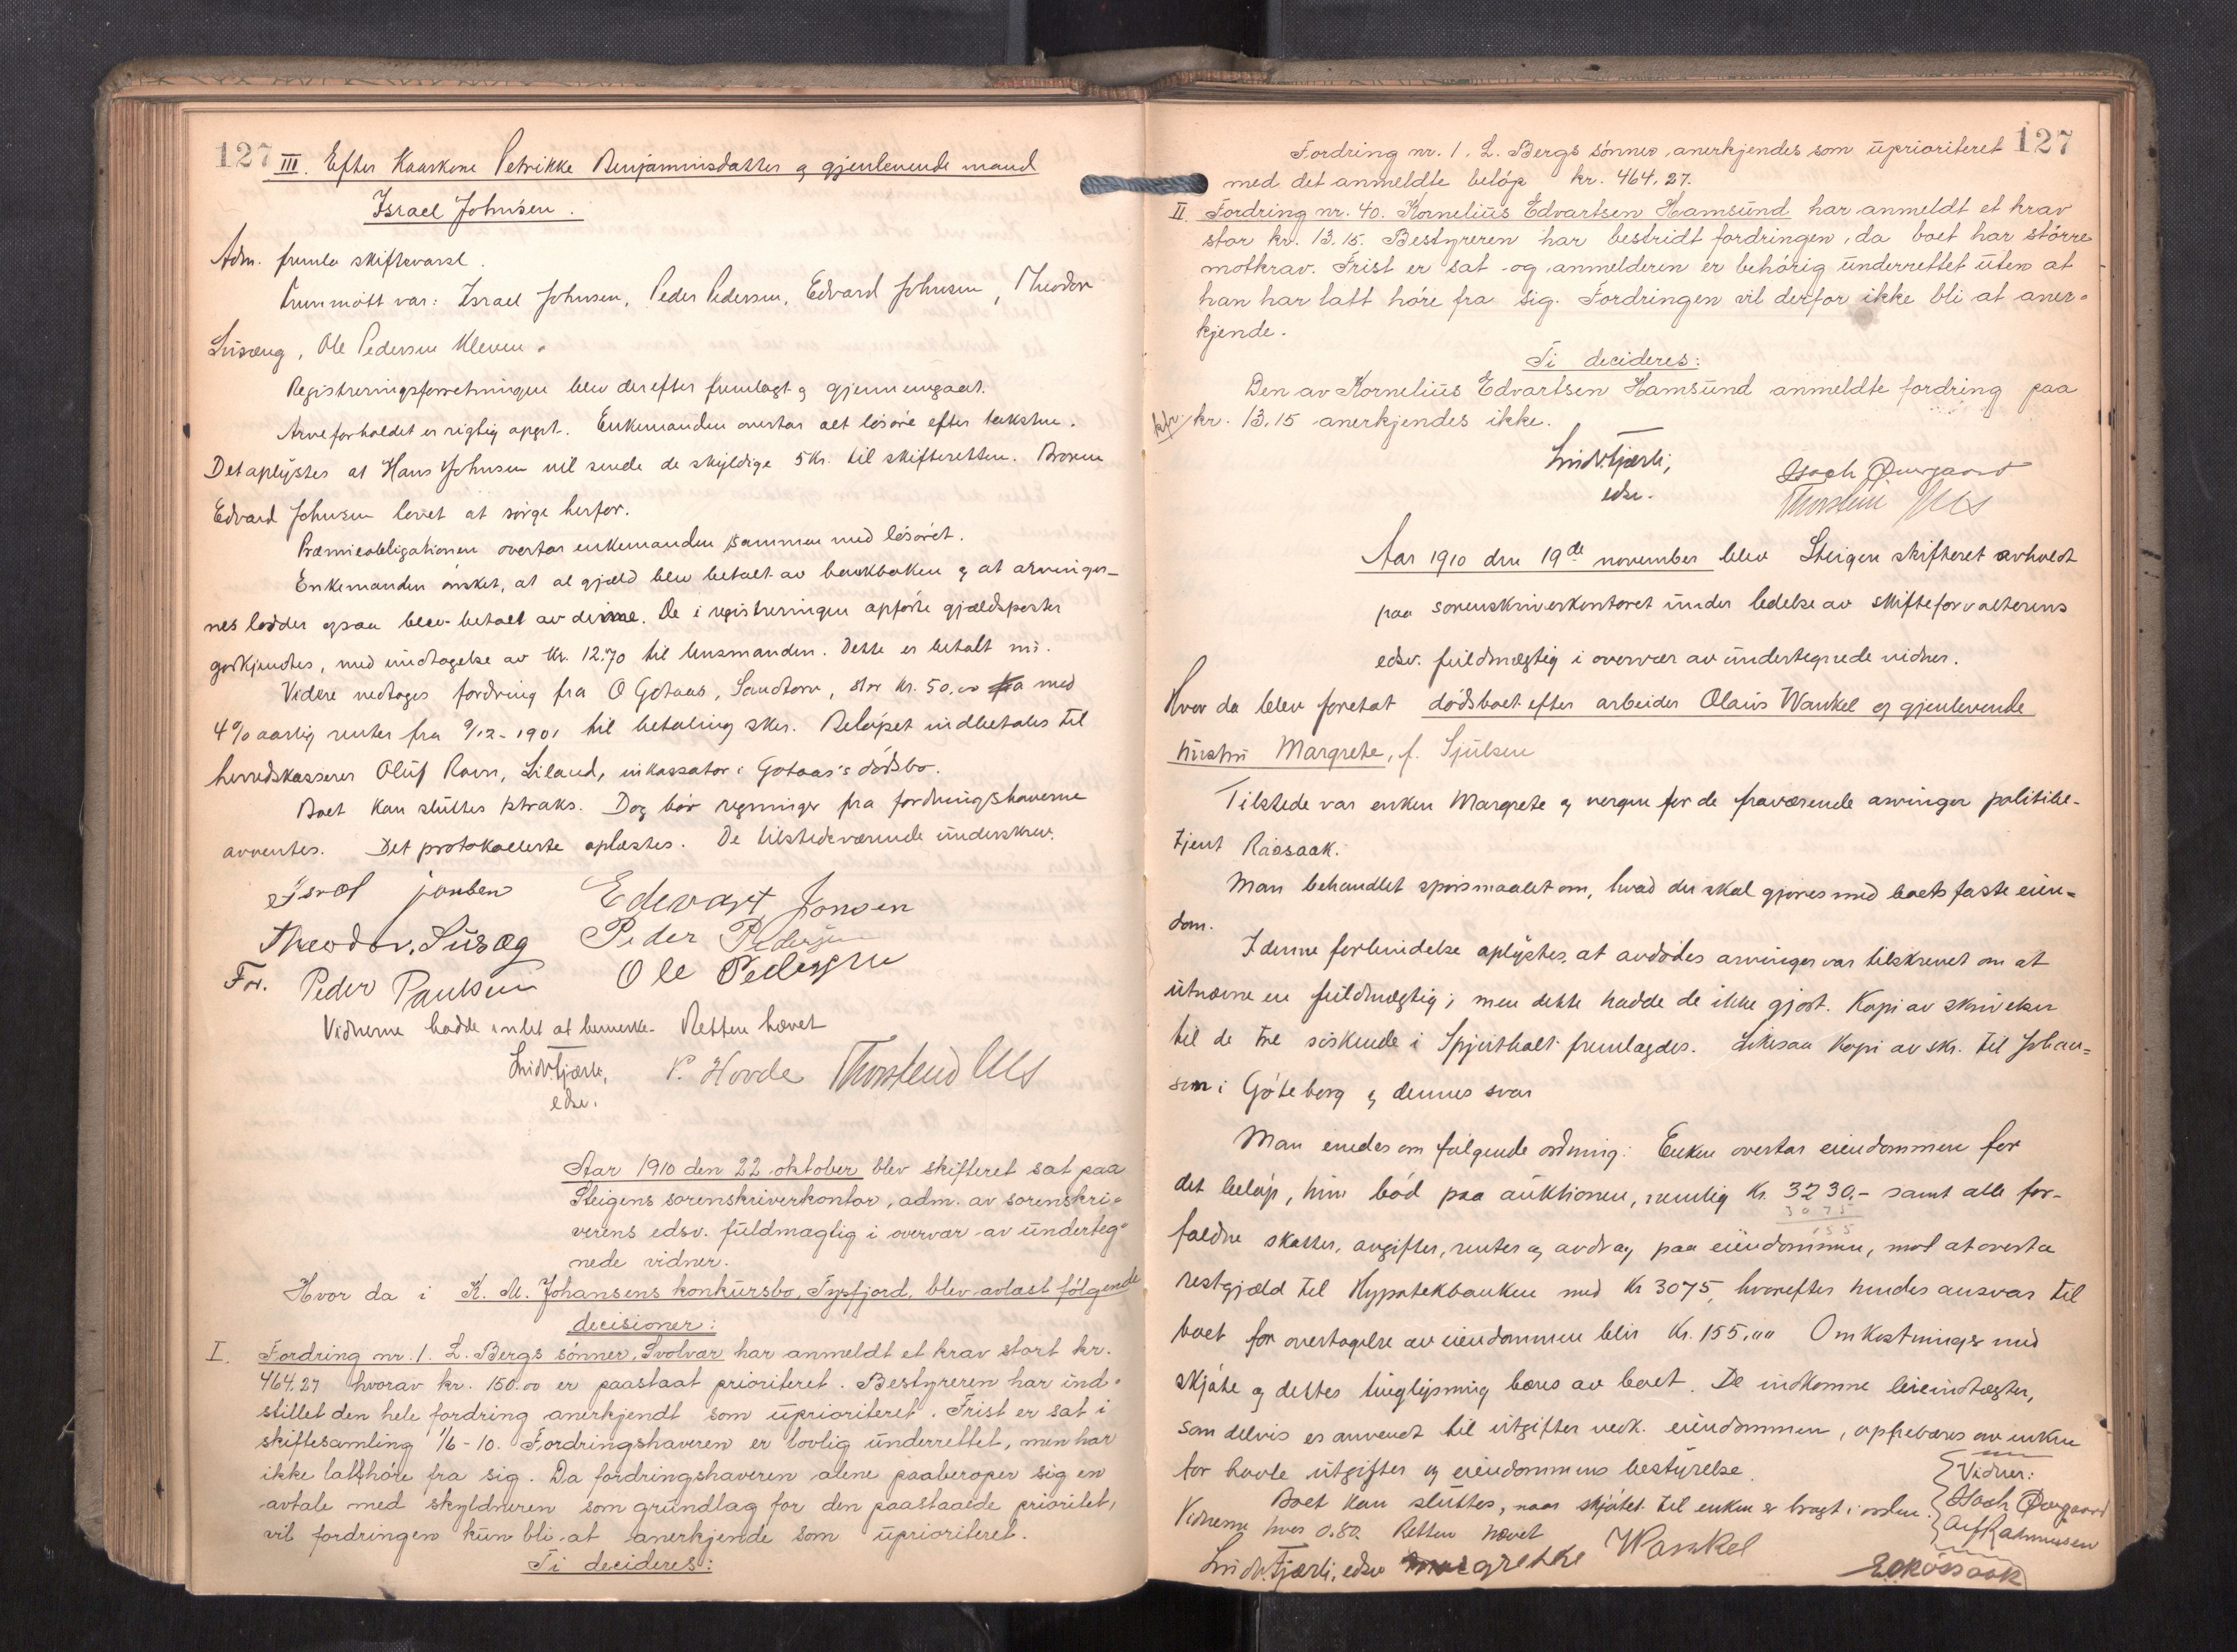 127
III. Efter Kaarkone Petrikke Benjaminsdatter og gjenlevende mand
Israel Johnsen.
Adm. fremla skiftevarsel.
Fremmøtt var: Israel Johnsen, Peder Pedersen, Edvard Johnsen, Theodor
Susæng, Ole Pedersen Kleven.
Registreringsforretningen blev derefter fremlagt og gjennemgaat.
Arveforholdet er rigtig opgit. Enkemanden overtar alt løsøre efter taksten.
Det oplystes at Hans Johnsen vil sende de skyldige 5 Kr. til skifteretten. Broren
Edvard Johnsen lovet at sørge herfor.
Præmieobligationen overtar enkemanden sammen med løsøret.
Enkemanden ønsket, at al gjæld blev betalt av bankboken og at arvinger-
nes lodder ogsaa blev betalt av denne. De i registreringen opførte gjældsposter
godkjendtes, med undtagelse av Kr. 12.70 til lensmanden. Dette er betalt nu.
Videre vedtages fordring fra O Gotaas, Sandtorv, stor kr. 50.00 med
4% aarlig renter fra 9/12-1901 til betaling sker. Beløpet indbetales til
herredskasserer Oluf Ravn, Liland, inkassator i Gotaas's dødsbo.
Boet kan sluttes straks. Dog bør regninger fra fordringshaverne
avventes. Det protokollerte oplæstes. De tilstedeværende underskrev.
Isral jonsen Edevart Jonsen
Theodor. Susæg Peder Pedersen
For. Peder Paulsen Ole Pedersen
Vidnerne hadde intet at bemerke. Retten hævet
Lindv. Tjærli, P. Hovde Thorstein Ules
edsv.
Aar 1910 den 22 oktober blev skifteret sat paa
Steigens sorenskriverkontor, adm. av sorenskri-
verens edsv. fuldmægtig i overvær av underteg-
nede vidner.
Hvor da i K. M. Johansens konkursbo, Typfjord, blev avlæst følgende
decisioner:
I. Fordring nr. 1. L. Bergs sønner, Svolvær har anmeldt et krav stort kr.
464.27 hvorav kr. 150.00 er paastaat prioriteret. Bestyreren har ind-
stillet den hele fordring anerkjendt som uprioriteret. Frist er sat i
skiftesamling 1/6-10. Fordringshaveren er lovlig underrettet, men har
ikke latt høre fra sig. Da fordringshaveren alene paaberoper sig en
avtale med skyldneren som grundlag for den paastaaede prioritet,
vil fordringen kun bli at anerkjende som uprioriteret.
Ti decideres:
127
Fordring nr. 1. L. Bergs sønner, anerkjendes som uprioriteret
med det anmeldte beløp kr. 464.27.
II. Fordring nr. 40. Kornelius Edvartsen Hamsund har anmeldt et krav
stor kr. 13.15. Bestyreren har bestridt fordringen, da boet har større
motkrav. Frist er sat og anmelderen er behørig underrettet uten at
han har latt høre fra sig. Fordringen vil derfor ikke bli at aner-
kjende.
Ti decideres:
Den av Kornelius Edvartsen Hamsund anmeldte fordring paa
kr. 13.15 anerkjendes ikke.
Lindv. Tjærli,
edsv.
Thorstein Ules
Aar 1910 den 19de november blev Steigen skifteret avholdt
paa sorenskriverkontoret under ledelse av skifteforvalterens
edsv. fuldmægtig i overvær av undertegnede vidner.
Hvor da blev foretat dødsboet efter arbeider Olaus Wankel og gjenlevende
hustru Margrete, f. Sjulsen
Tilstede var enken Margrete og vergen for de fraværende arvinger politibe-
tjent Raasaak.
Man behandlet spørsmaalet om, hvad der skal gjøres med boets faste eien-
dom.
I denne forbindelse oplystes, at avdødes arvinger var tilskrevet om at
utnævne en fuldmægtig; men dette hadde de ikke gjort. Kopi av skrivelser
til de tre søskende i Spjuthult fremlagdes. Likesaa kopi av skr. til Johan-
son i Gøteborg og dennes svar
Man enedes om følgende ordning: Enken overtar eiendommen for
det beløp, hun bød paa auktionen, nemlig Kr. 3230.- samt alle for-
3075
155
faldne skatter, avgifter, renter og avdrag paa eiendommen, mot at overta
restgjæld til Hypotekbanken med Kr 3075, hvorefter hendes ansvar til
boet for overtagelse av eiendommen blir Kr. 155.00 Omkostninger med
skjøte og dettes tinglysning bæres av boet. De indkomne leieindtægter,
som delvis er anvendt til utgifter vedk. eiendommen, oppebæres av enken
for havte utgifter og eiendommens bestyrelse.
Boet kan sluttes, naar skjøtet til enken er bragt i orden.
Vidnerne hver 0.80. Retten hævet
Vidner:
Alf Rasmussen
Lindv. Tjærli, edsv Margrethe Wankel